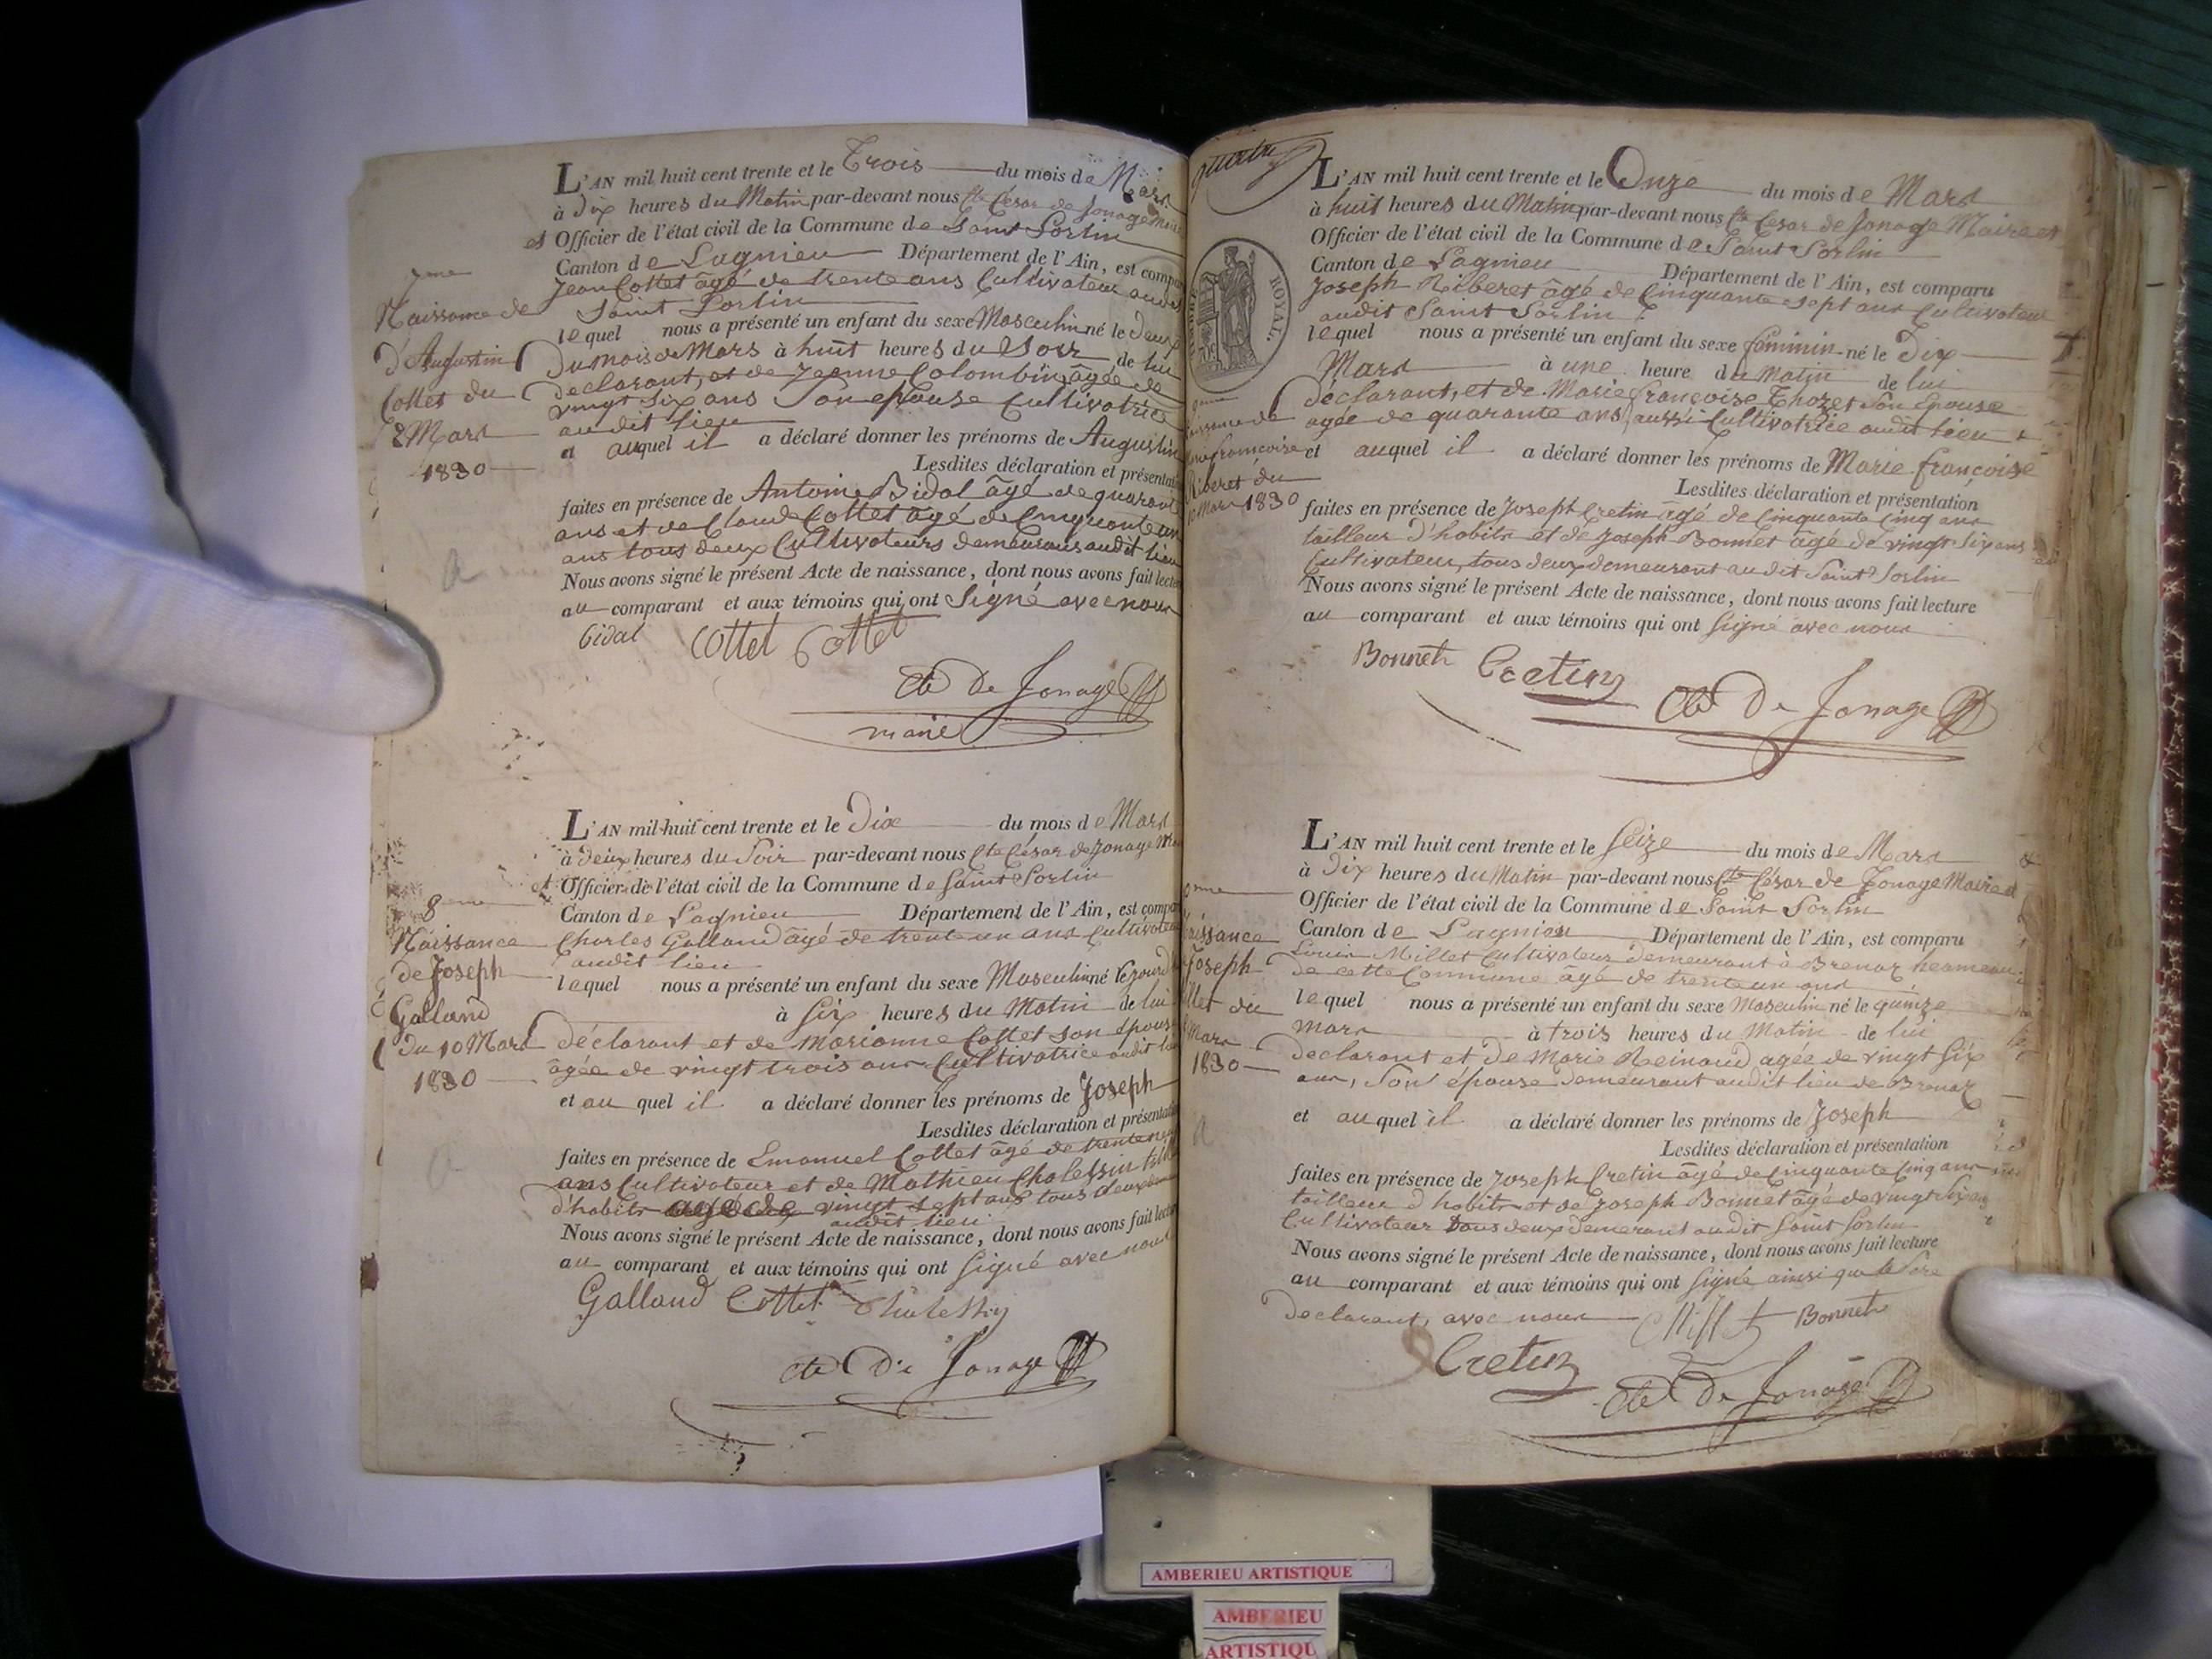 L'AN mil huit cent trente et le Trois du mois de Mars
à Dix heures du Matin par-devant nous Cte César de Jonage Maire
et Officier de l'état civil de la Commune de Saint Sorlin
Canton de Lagnieu Département de l'Ain, est comparu
Jean Cottet âgé de trente ans Cultivateur audit
Saint Sorlin
lequel nous a présenté un enfant du sexe Masculin né le deux
du mois de Mars à huit heures du Soir de lui
declarant, et de Jeanne Colombin âgée de
vingt six ans Son epouse Cultivatrice
audit lieu
et auquel il a déclaré donner les prénoms de Augustin
Lesdites déclaration et présentation
faites en présence de Antoine Bidal âgé de quarante
ans et de Claude Cottet âgé de Cinquante un
ans tous deux Cultivateurs demeurans audit lieu
Nous avons signé le présent Acte de naissance, dont nous avons fait lecture
au comparant et aux témoins qui ont Signé avec nous
Bidal Cottet Cottet
Cte De Jonage
maire
7eme
Naissance de
d'Augustin
Cottet du
2 Mars
1830
L'AN mil huit cent trente et le Dix du mois de Mars
à Deux heures du Soir par-devant nous Cte César de Jonage
et Officier de l'état civil de la Commune de Saint Sorlin
Canton de Lagnieu Département de l'Ain, est comparu
Charles Galland âgé de trente un ans Cultivateur
audit lieu
lequel nous a présenté un enfant du sexe Masculin né le jourd
à Six heures du Matin de lui
déclarant et de Marianne Cottet son épouse
âgée de vingt trois ans Cultivatrice audit lieu
et au quel il a déclaré donner les prénoms de Joseph
Lesdites déclaration et présentation
faites en présence de Emanuel Cottet âgé de trente neuf
ans Cultivateur et de Mathieu Cholessin
d'habits vingt sept ans tous deux
audit lieu
Nous avons signé le présent Acte de naissance, dont nous avons fait lecture
au comparant et aux témoins qui ont Signé avec nous
Galland Cottet
Cte De Jonage
8eme
Naissance
de Joseph
Galland
du 10 Mars
1830
L'AN mil huit cent trente et le Onze du mois de Mars
à huit heures du Matin par-devant nous Cte César de Jonage Maire et
Officier de l'état civil de la Commune de Saint Sorlin
Canton de Lagnieu Département de l'Ain, est comparu
Joseph Riberet âgé de Cinquante sept ans Cultivateur
audit Saint Sorlin
lequel nous a présenté un enfant du sexe féminin né le Dix
Mars à une heure du Matin de lui
déclarant, et de Marie françoise Thozet Son Epouse
agée de quarante ans, aussi Cultivatrice audit lieu
et auquel il a déclaré donner les prénoms de Marie françoise
Lesdites déclaration et présentation
faites en présence de Joseph Cretin âgé de Cinquante Cinq ans
tailleur d'habits et de Joseph Bonnet âgé de vingt-six ans
Cultivateur, tous deux demeurant audit Saint Sorlin
Nous avons signé le présent Acte de naissance, dont nous avons fait lecture
au comparant et aux témoins qui ont Signé avec nous
Bonnet Cretin
Cte De Jonage
ROYAL
françoise
Riberet du
Mars 1830
L'AN mil huit cent trente et le Seize du mois de Mars
à Dix heures du Matin par-devant nous Cte César de Jonage Maire et
Officier de l'état civil de la Commune de Saint Sorlin
Canton de Lagnieu Département de l'Ain, est comparu
Louis Millet Cultivateur demeurant à Brenaz heameau
de cette Commune âgé de trente un ans
lequel nous a présenté un enfant du sexe Masculin né le quinze
mars à trois heures du Matin de lui
declarant et de Marie Reinaud agée de vingt six
ans, Son épouse demeurant audit lieu de Brenaz
et auquel il a déclaré donner les prénoms de Joseph
Lesdites déclaration et présentation
faites en présence de Joseph Cretin âgé de Cinquante Cinq ans
tailleur d'habits et de Joseph Bonnet âgé de vingt Six ans
Cultivateur tous deux demerant audit Saint Sorlin
Nous avons signé le présent Acte de naissance, dont nous avons fait lecture
au comparant et aux témoins qui ont Signé ainsi que le Père
Declarant, avec nous Millet Bonnet
Cretin
Cte De Jonage
Joseph
du
Mars
1830
AMBERIEU ARTISTIQUE
AMBERIEU
ARTISTIQU